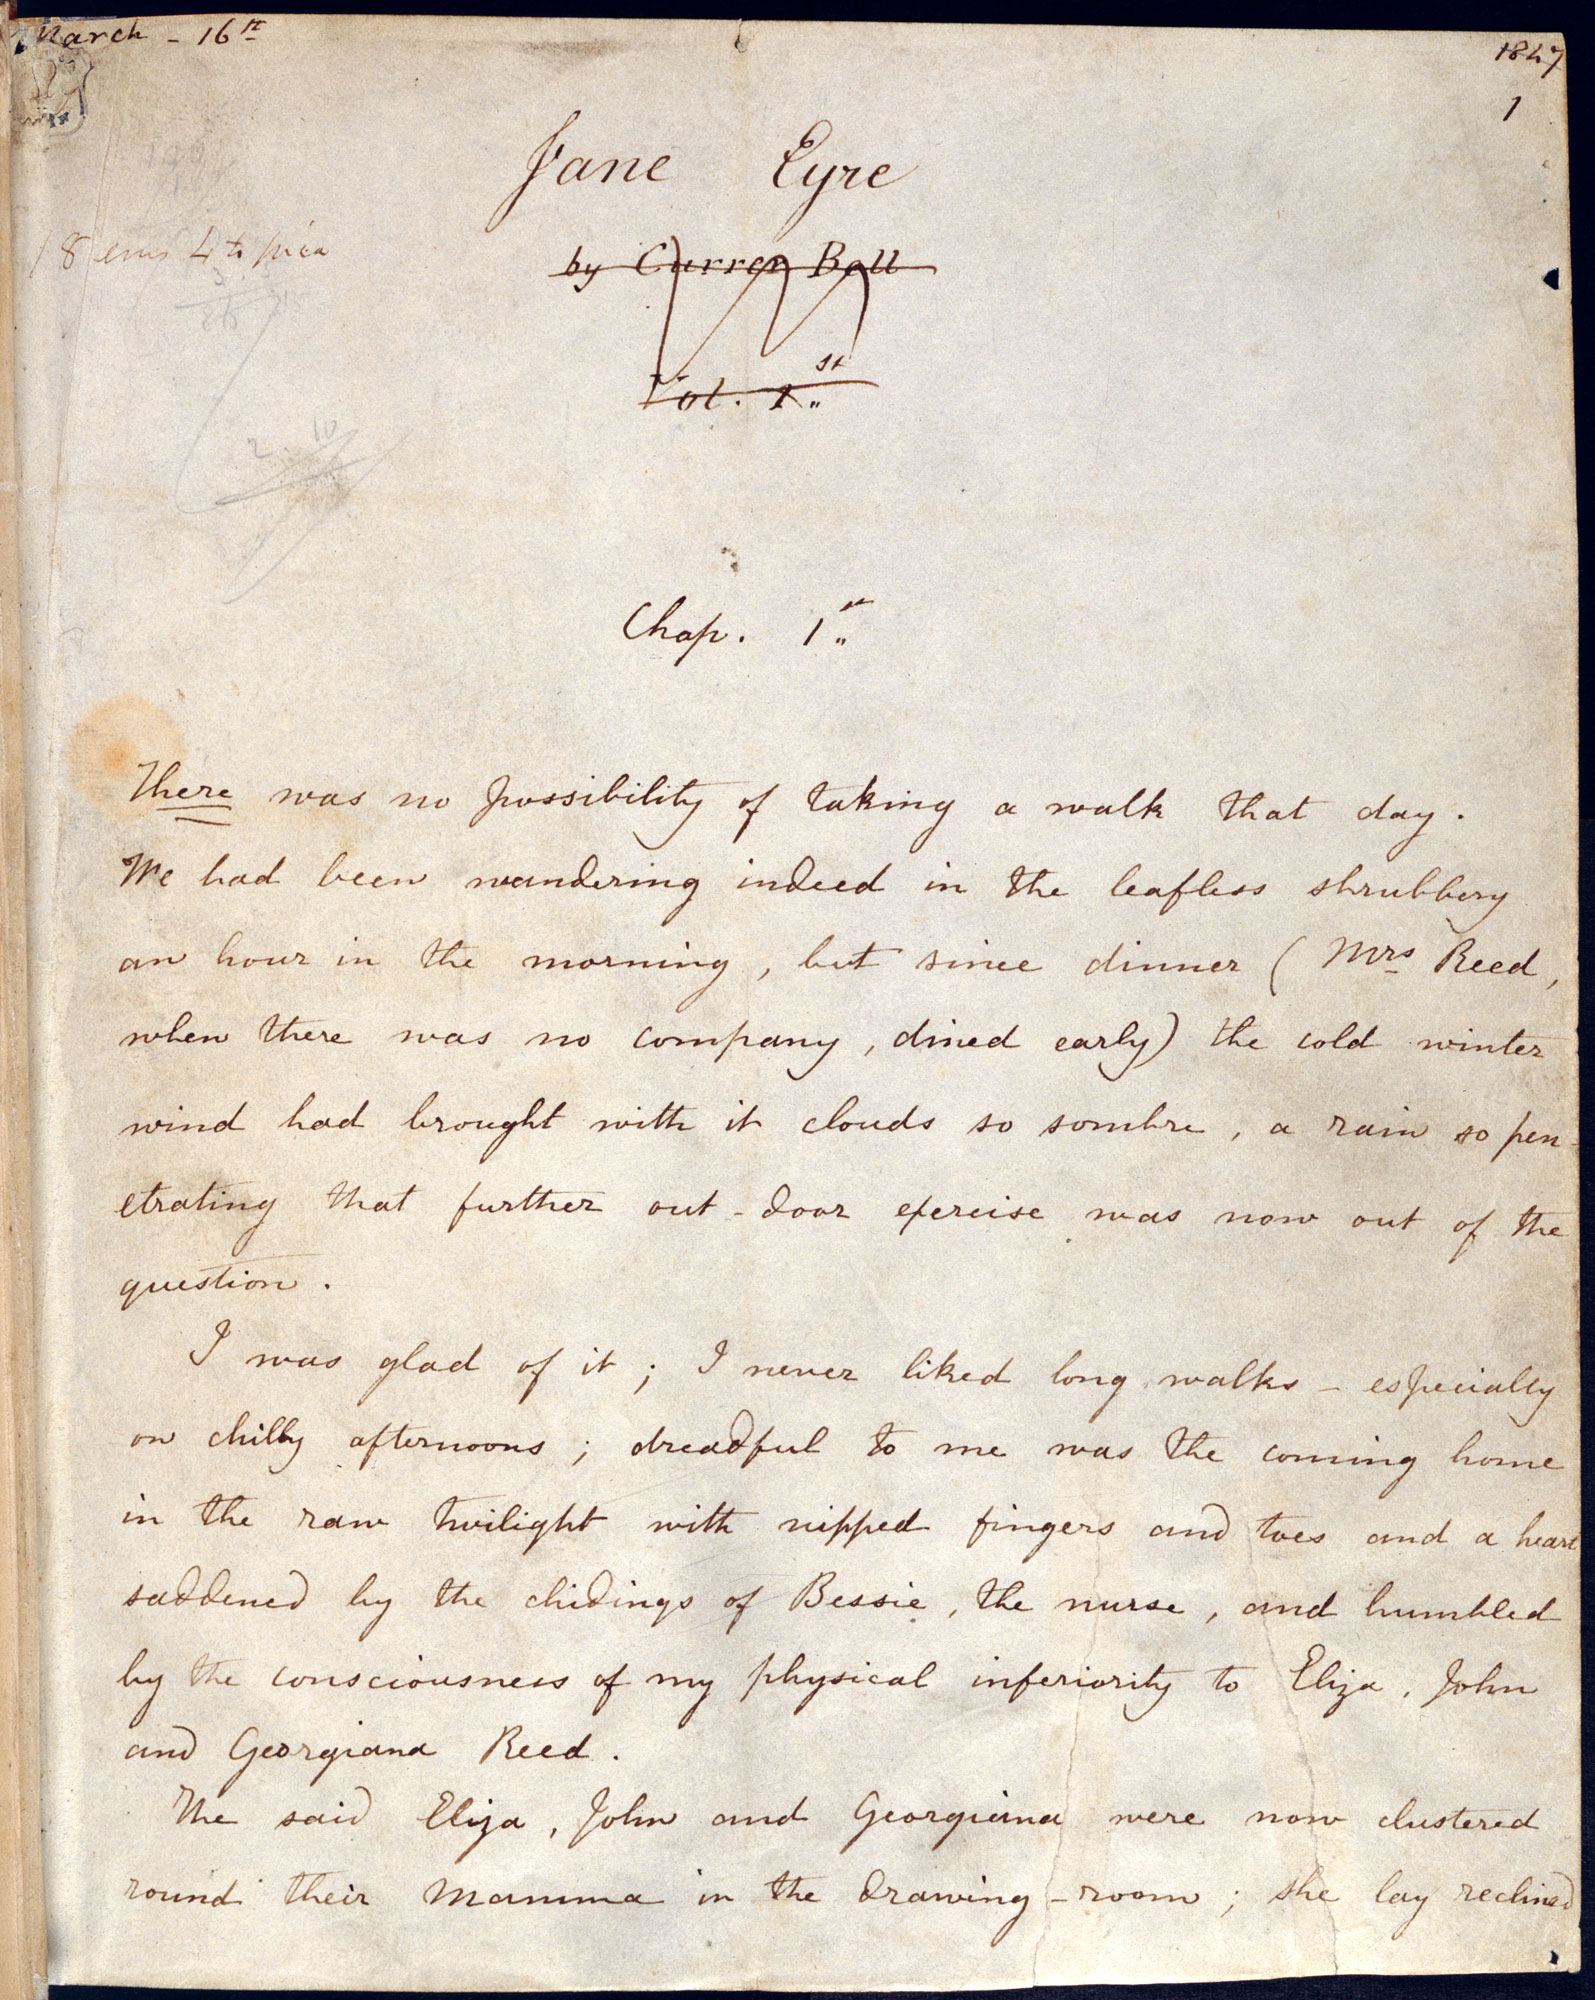 March - 16th
1847
1
Jane Eyre
by Currer Bell
Vol. 1st
18 ems 4to pica
2 10
Chap. 1st
There was no possibility of taking a walk that day.
We had been wandering indeed in the leafless shrubbery
an hour in the morning, but since dinner (Mrs Reed,
when there was no company, dined early) the cold winter
wind had brought with it clouds so sombre, a rain so pen-
etrating that further out-door exercise was now out of the
question.
I was glad of it; I never liked long walks - especially
on chilly afternoons; dreadful to me was the coming home
in the raw twilight with nipped fingers and toes and a heart
saddened by the chidings of Bessie, the nurse, and humbled
by the consciousness of my physical inferiority to Eliza, John
and Georgiana Reed.
The said Eliza, John and Georgiana were now clustered
round their Mamma in the drawing-room; she lay reclined